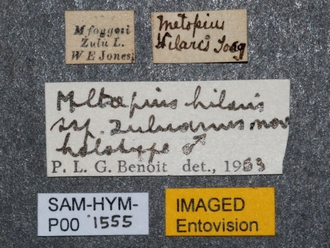 Mfoggosi
Zulu L.
W E Jones.
Metopius
hilaris Tosq
Metopius hilaris
ssp. zuluanus nov
holotype ♂
P. L. G. Benoit det., 1953
SAM-HYM-
P00 1555
IMAGED
Entovision